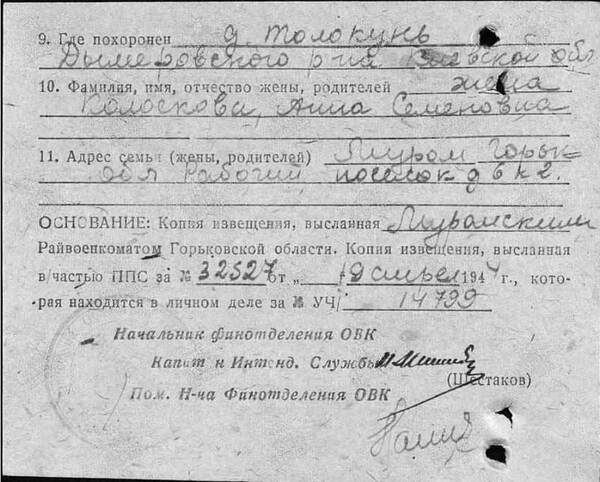 9. Где похоронен д. Толокунь
Дымеровского р-на Киевской обл
10. Фамилия, имя, отчество жены, родителей жена
Колоскова, Анна Семеновна
11. Адрес семьи (жены, родителей) Муром Горьк
обл Рабочий поселок д 6 к 2.
ОСНОВАНИЕ: Копия извещения, высланная Муромским
Райвоенкоматом Горьковской области. Копия извещения, высланная
в/частью ППС за № 32527 от „ 194 г., кото-
рая находится в личном деле за № УЧ/ 14799
Начальник финотделения ОВК
Капитан Интенд. Службы
(Шестаков)
Пом. Н-ка Финотделения ОВК